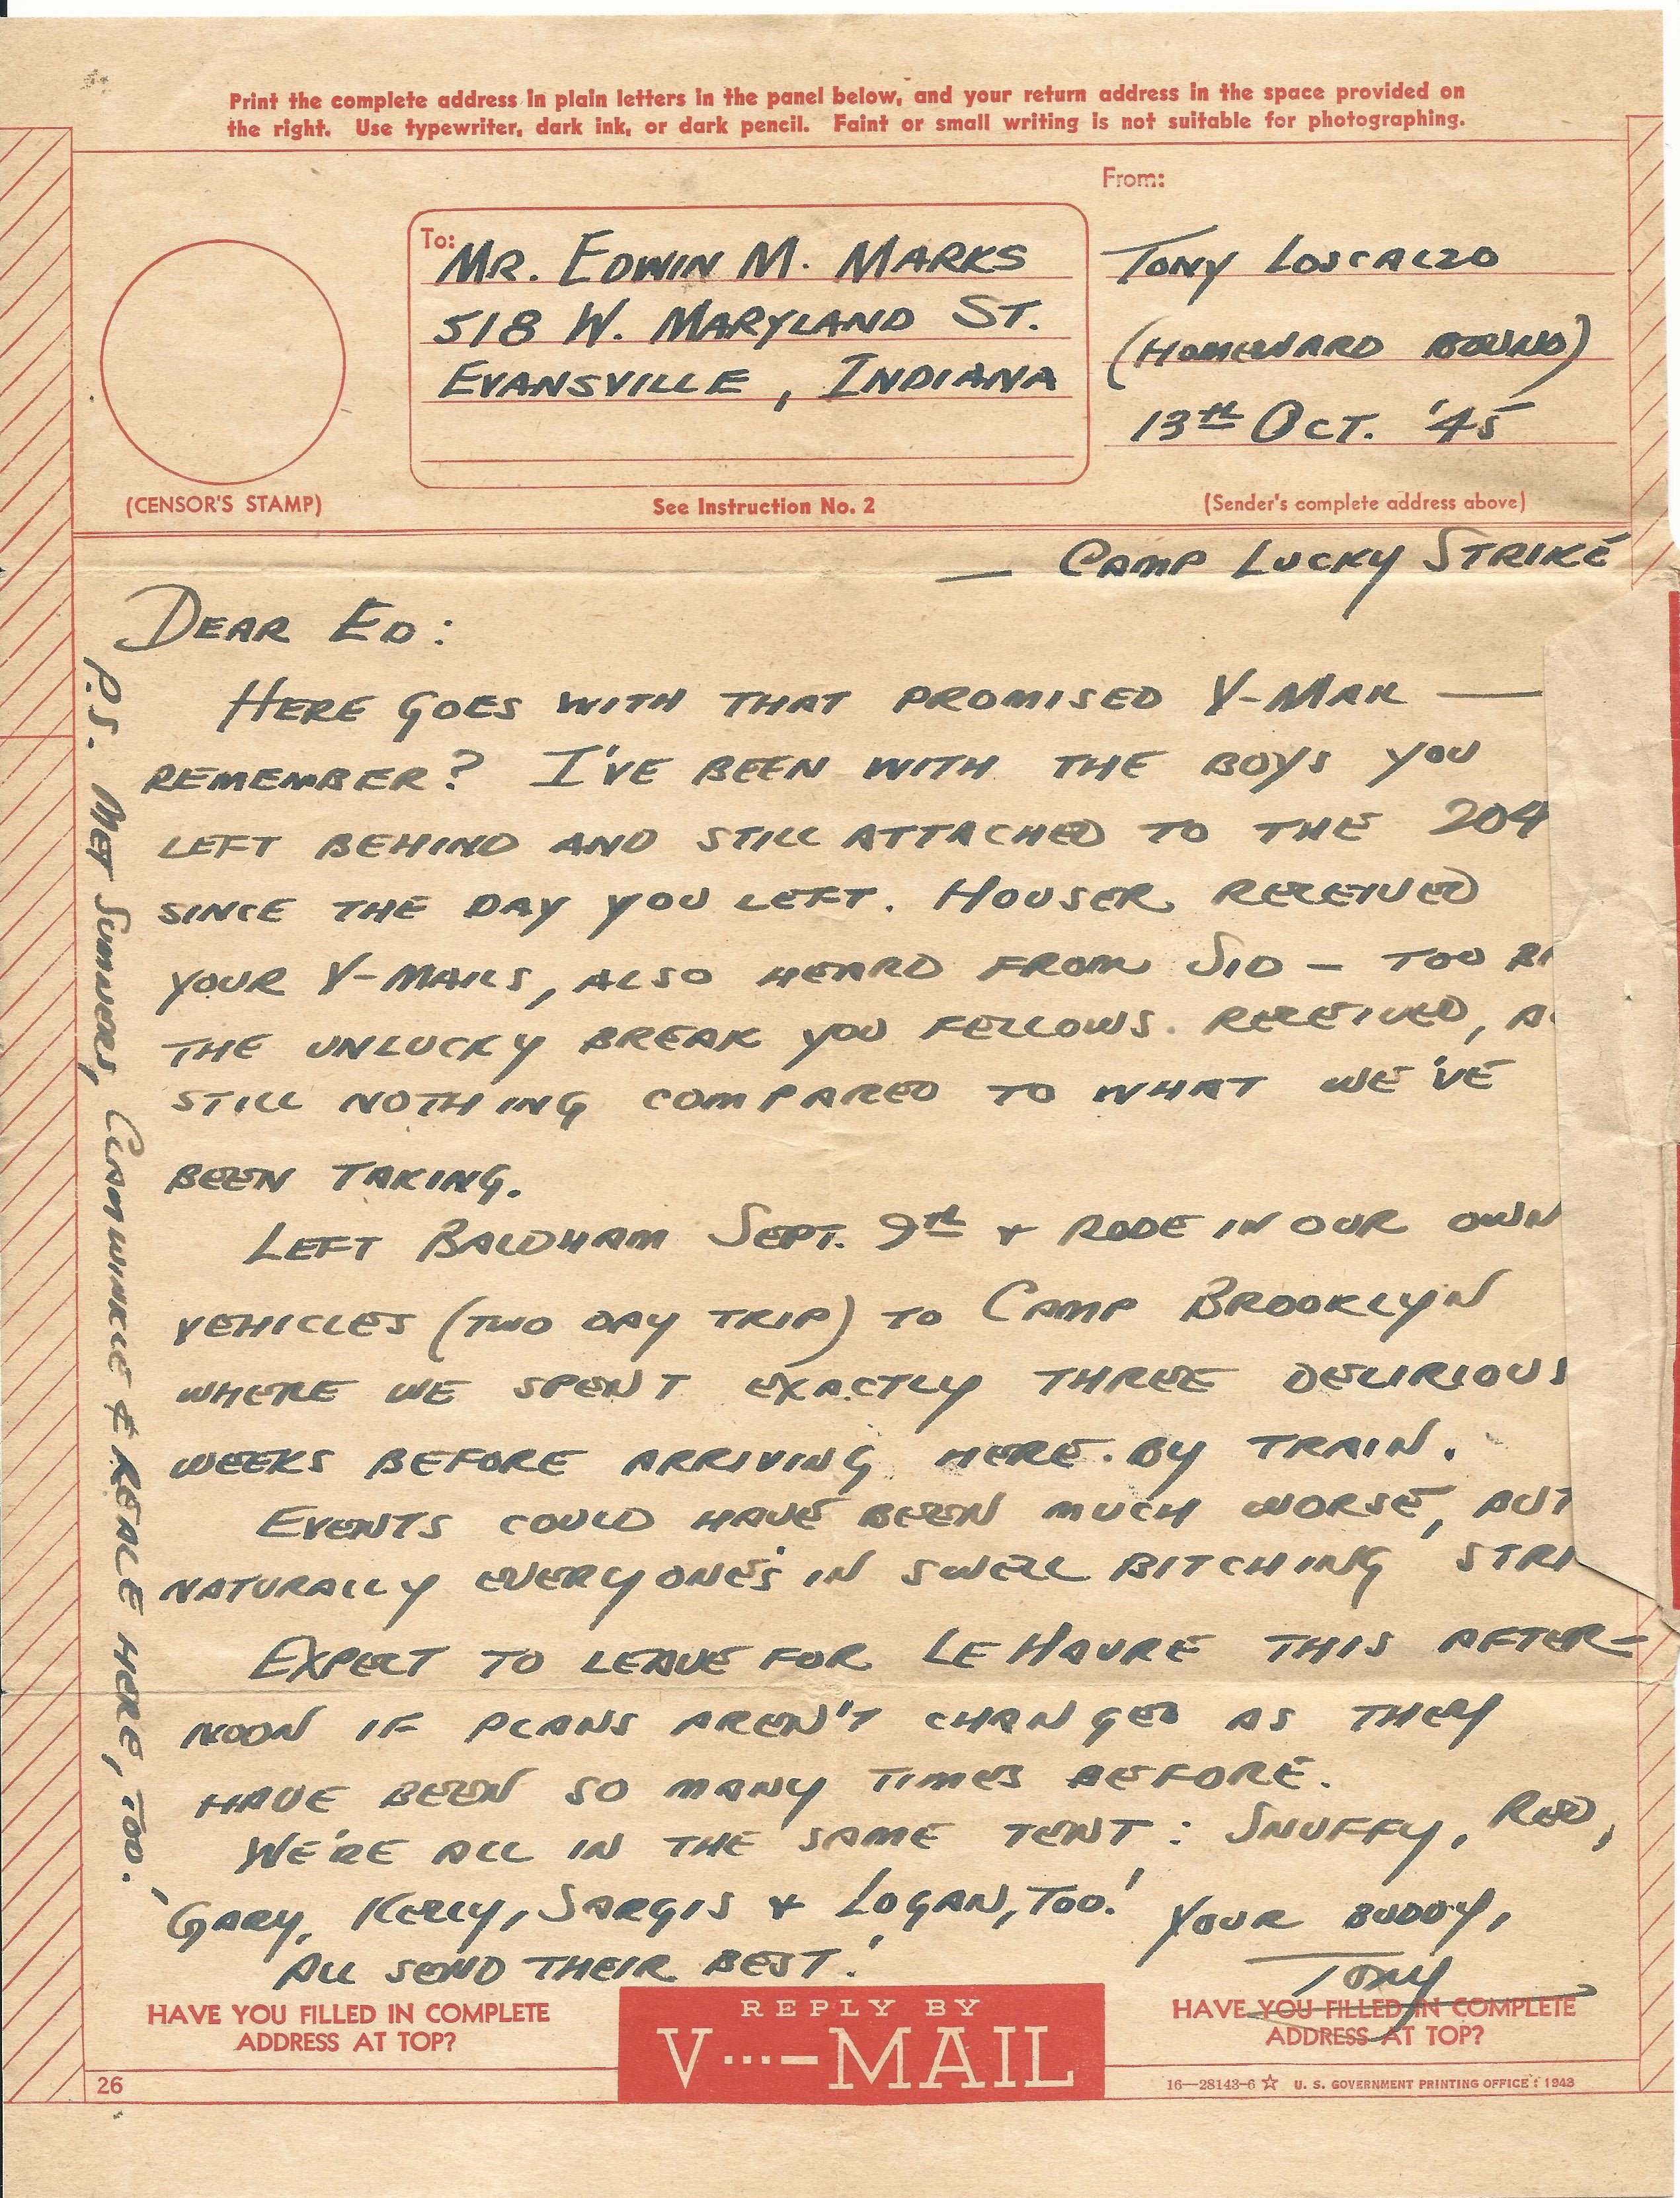 Print the complete address in plain letters in the panel below, and your return address in the space provided on
the right. Use typewriter, dark ink, or dark pencil. Faint or small writing is not suitable for photographing.
From:
To:
MR. EDWIN M. MARKS
518 W. MARYLAND ST.
EVANSVILLE, INDIANA
TONY LOSCALZO
(HOMEWARD BOUND)
13th OCT. '45
(CENSOR'S STAMP)
See Instruction No. 2
(Sender's complete address above)
— CAMP LUCKY STRIKE
DEAR ED:
HERE GOES WITH THAT PROMISED V-MAIL —
REMEMBER? I'VE BEEN WITH THE BOYS YOU
LEFT BEHIND AND STILL ATTACHED TO THE 204
SINCE THE DAY YOU LEFT. HOUSER RECEIVED
YOUR V-MAILS, ALSO HEARD FROM SID — TOO
THE UNLUCKY BREAK YOU FELLOWS. RECEIVED,
STILL NOTHING COMPARED TO WHAT WE'VE
BEEN TAKING.
LEFT BALDHAM SEPT. 9th & RODE IN OUR OWN
VEHICLES (TWO DAY TRIP) TO CAMP BROOKLYN
WHERE WE SPENT EXACTLY THREE DELIRIOUS
WEEKS BEFORE ARRIVING HERE. BY TRAIN.
EVENTS COULD HAVE BEEN MUCH WORSE, BUT
NATURALLY EVERYONE'S IN SWELL BITCHING STRI
EXPECT TO LEAVE FOR LE HAVRE THIS AFTER-
NOON IF PLANS AREN'T CHANGED AS THEY
HAVE BEEN SO MANY TIMES BEFORE.
WE'RE ALL IN THE SAME TENT: SNUFFY, RED,
GARY, KELLY, SARGIS & LOGAN, TOO!
ALL SEND THEIR BEST!
YOUR BUDDY,
TONY
P.S. MET SUMNERS, CLAMWINKLE & REALE HERE, TOO.
HAVE YOU FILLED IN COMPLETE
ADDRESS AT TOP?
REPLY BY
V···—MAIL
HAVE YOU FILLED IN COMPLETE
ADDRESS AT TOP?
26
16—28143-6 ☆ U. S. GOVERNMENT PRINTING OFFICE : 1943